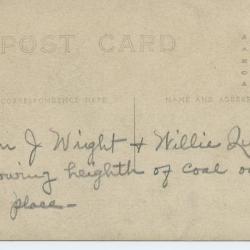 POST CARD
CORRESPONDENCE HERE
NAME AND ADDRESS
J Wright + Willie
heighth of coal
place -